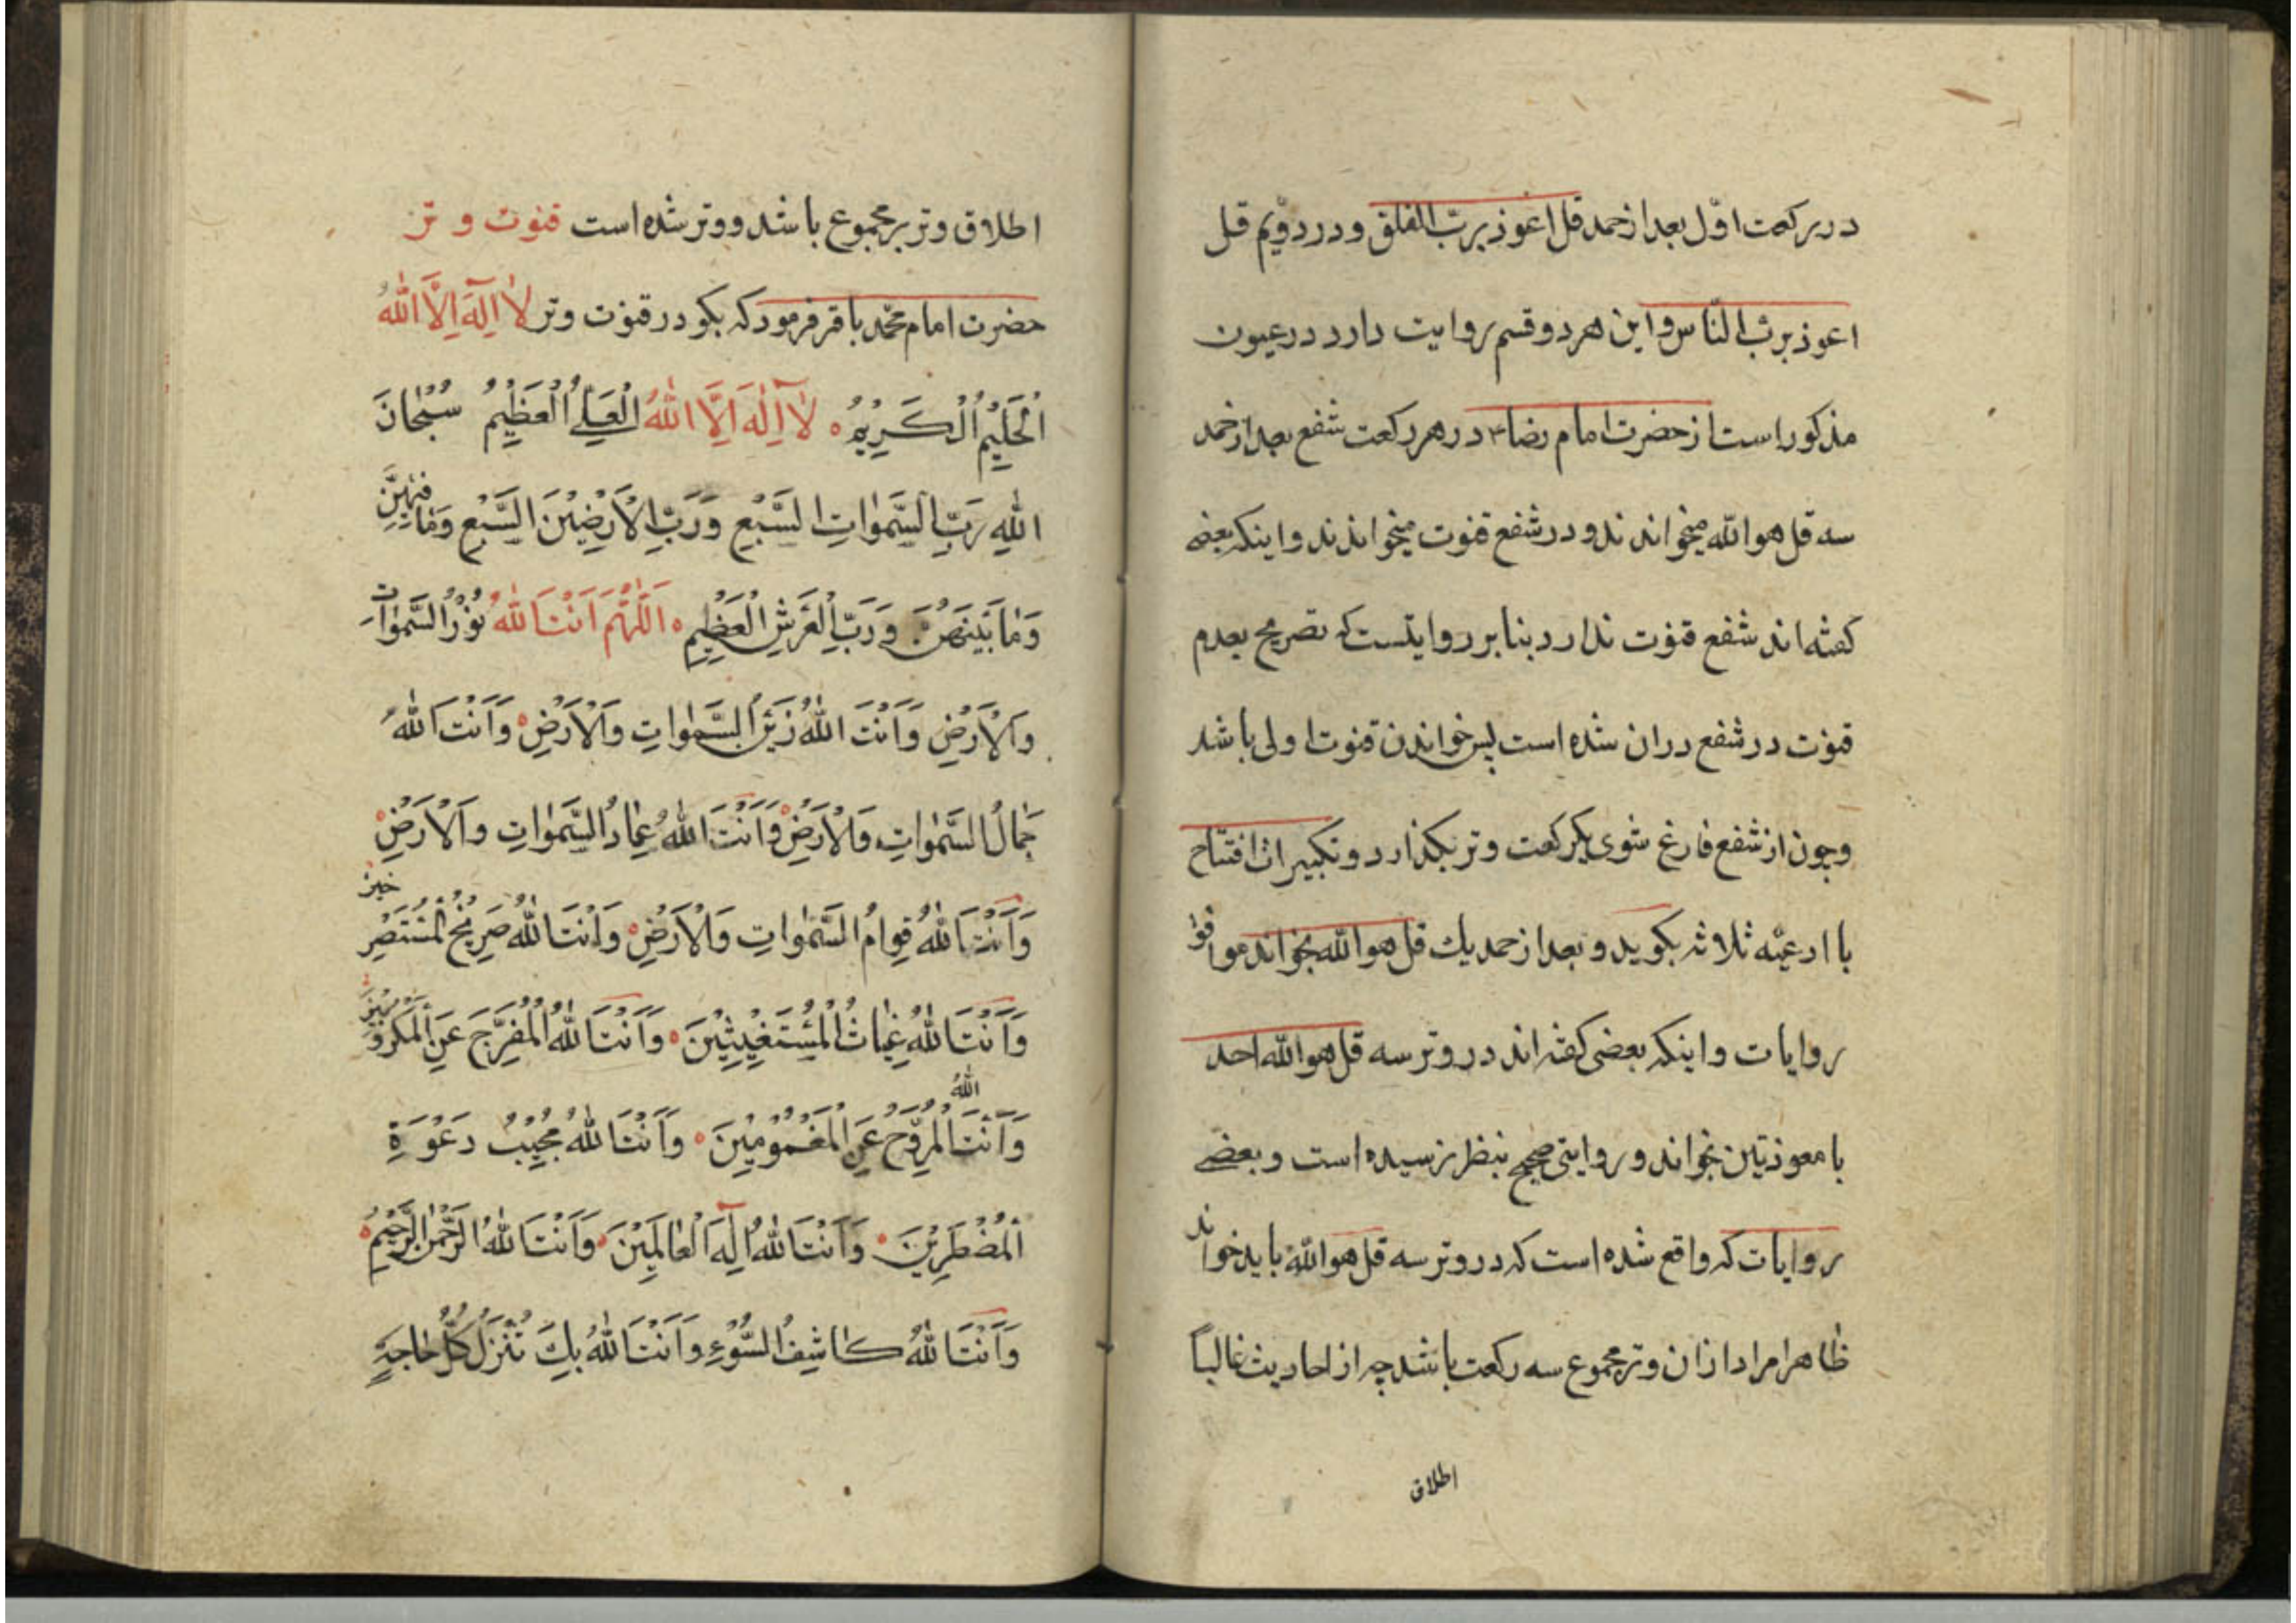 در رکعت اوّل بعد از حمد قل اعوذ بربّ الفلق و در دوّیم قل
اعوذ بربّ النّاس و این هر دو قسم روایت دارد در عیون
مذکور است از حضرت امام رضا ع در هر رکعت شفع بعد از حمد
سه قل هو اللّه میخوانده‌اند و در شفع قنوت میخواندند و اینکه بعضی
کفته اند شفع قنوت ندارد بنا بر روایتست که تصریح بعدم
قنوت در شفع دران شده است پس خواندن قنوت اولی باشد
و چون از شفع فارغ شوی یکرکعت وتر بکذارد و تکبیرات افتتاح
با ادعیّه ثلاثه بکوید و بعد از حمد یك قل هو اللّه بخواند موافق
روایات و اینکه بعضی کفته اند در وتر سه قل هو اللّه احد
با معوذتین بخواند و روایتی صحیح بنظر نرسیده است و بعضی
روایات که واقع شده است که در وتر سه قل هو اللّه باید خواند
ظاهرا مراد ازان وتر مجموع سه رکعت باشد چه از احادیث غالباً
اطلاق
اطلاق وتر بر مجموع باشد و وتر شده است قنوت وتر
حضرت امام محمّد باقر فرمود که بکو در قنوت وتر لَا اِلٰهَ اِلَّا اللّٰهُ
اَلْحَلِيْمُ الْكَرِيْمُ لَآ اِلٰهَ اِلَّا اللّٰهُ الْعَلِيُّ الْعَظِيْمُ سُبْحَانَ
اللّٰهِ رَبِّ السَّمٰوَاتِ السَّبْعِ وَرَبِّ الْاَرَضِيْنَ السَّبْعِ وَمَا فِيْهِنَّ
وَمَا بَيْنَهُنَّ وَرَبِّ الْعَرْشِ الْعَظِيْمِ اَللّٰهُمَّ اَنْتَ اللّٰهُ نُوْرُ السَّمٰوَاتِ
وَالْاَرْضِ وَاَنْتَ اللّٰهُ زَيْنُ السَّمٰوَاتِ وَالْاَرْضِ وَاَنْتَ اللّٰهُ
جَمَالُ السَّمٰوَاتِ وَالْاَرْضِ وَاَنْتَ اللّٰهُ عِمَادُ السَّمٰوَاتِ وَالْاَرْضِ
وَاَنْتَ اللّٰهُ قِوَامُ السَّمٰوَاتِ وَالْاَرْضِ وَاَنْتَ اللّٰهُ صَرِيْخُ الْمُسْتَصْرِخِيْنَ
وَاَنْتَ اللّٰهُ غِيَاثُ الْمُسْتَغِيْثِيْنَ وَاَنْتَ اللّٰهُ الْمُفَرِّجُ عَنِ الْمَكْرُوْبِيْنَ
وَاَنْتَ اللّٰهُ الْمُرَوِّحُ عَنِ الْمَغْمُوْمِيْنَ وَاَنْتَ اللّٰهُ مُجِيْبُ دَعْوَةِ
الْمُضْطَرِّيْنَ وَاَنْتَ اللّٰهُ اِلٰهَ الْعَالَمِيْنَ وَاَنْتَ اللّٰهُ الرَّحْمٰنُ الرَّحِيْمُ
وَاَنْتَ اللّٰهُ كَاشِفُ السُّوْءِ وَاَنْتَ اللّٰهُ بِكَ تُنْزَلُ كُلُّ حَاجَةٍ